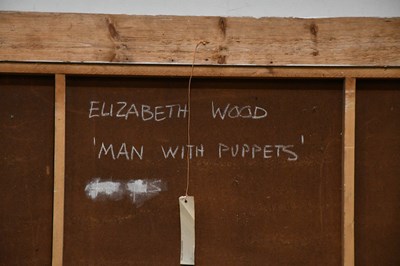 ELIZABETH WOOD
'MAN WITH PUPPETS'